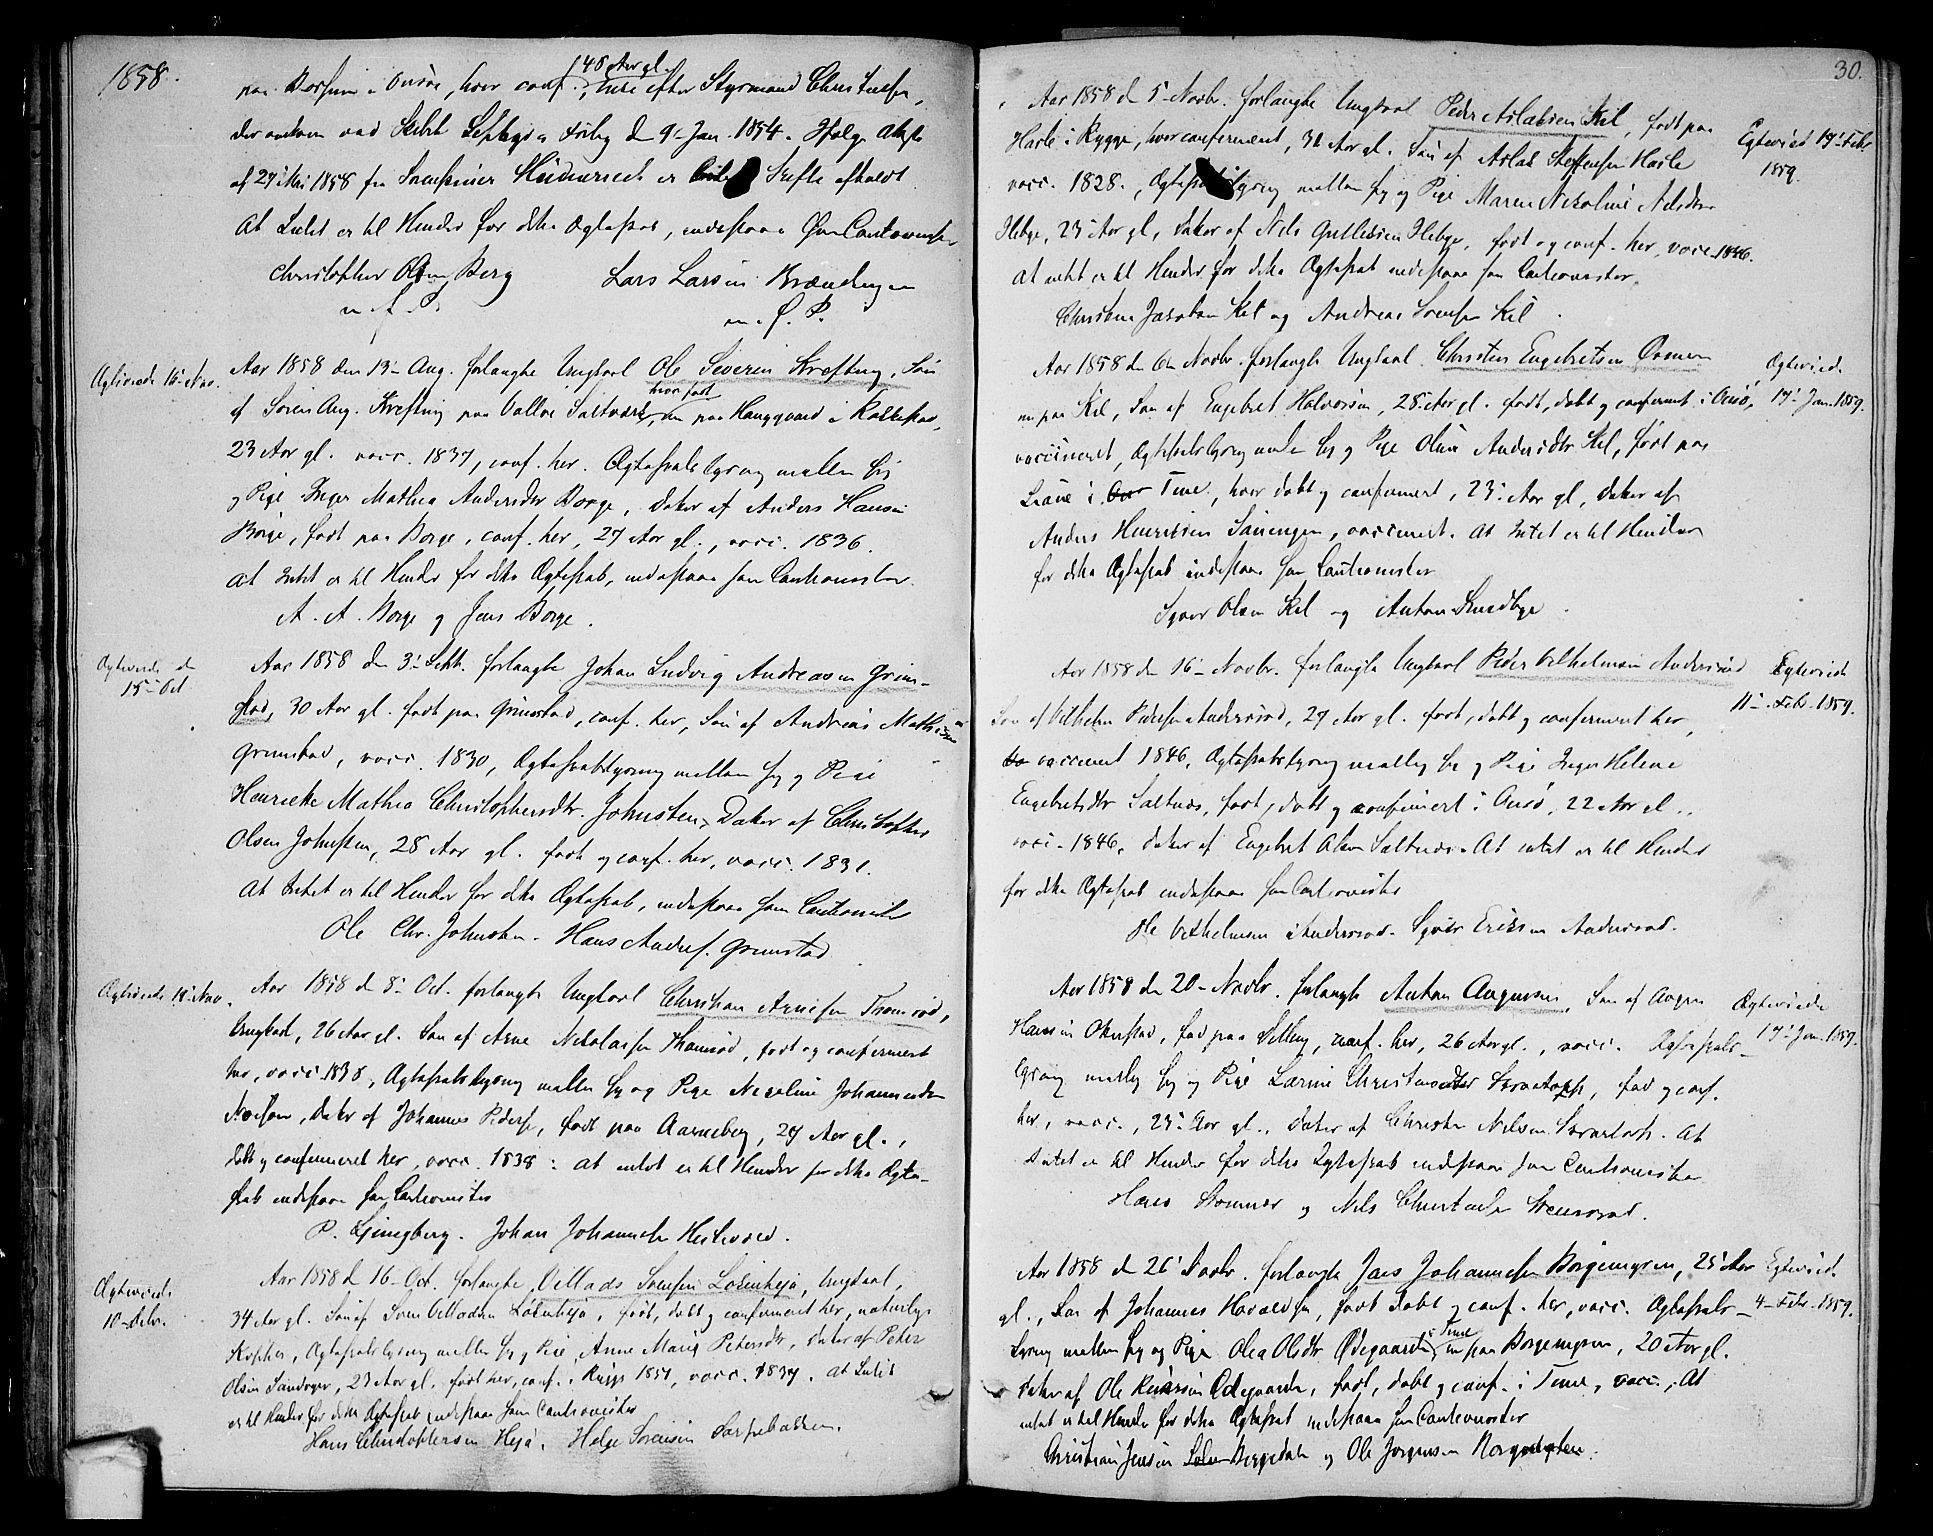 1858.
48 Aar gl.
paa i Onsøe, hvor conf., Enke efter Styrmand Christensen,
der omkom ved Skibet d 9 Jan. 1854. Ifølge Attest
af 27 Mai 1858 fra er Skifte afholdt.
At Intet er til Hinder for dette Ægteskab, indestaae som Cautionister
Christopher Olsen Berg Lars Larsen Brændingen
m. f. P. m. f. P.
Ægteviede 16 Nov.
Aar 1858 den 13 Aug. forlangte Ungkarl Ole Severin Krefting, Søn
hvor født
af Søren Aug. Krefting paa Valløe Saltværk, nu paa Hauggaard i Rakkestad,
23 Aar gl. vacc. 1837, conf. her. Ægteskabslysning mellem sig
og Pige Inger Mathea Andersdtr Borge, Datter af Anders Hansen
Borge, født paa Borge, conf. her, 27 Aar gl., vacc. 1836.
At Intet er til Hinder for dette Ægteskab, indestaae som Cautionister
A. A. Borge og Jens Borge.
Ægteviede d
15 Oct
Aar 1858 den 3 Septb. forlangte Johan Ludvig Andreasen Grim-
stad, 30 Aar gl. født paa Grimstad, conf. her, Søn af Andreas Mathisen
Grimstad, vacc. 1830, Ægteskabslysning mellem sig og Pige
Henrieke Mathea Christophersdtr. Johnsten, Datter af Christopher
Olsen Johnsten, 28 Aar gl. født og conf. her, vacc. 1831.
At Intet er til Hinder for dette Ægteskab, indestaae som Cautionister
Ole Chr. Johnsten. Hans Andres. Grimstad
Ægteviede 18 Nov.
Aar 1858 d 8 Oct. forlangte Ungkarl Christian Arnesen Thomsød,
Ungkarl, 26 Aar gl. Søn af Arne Nikolaisen Thomsød, født og confirmeret
her, vacc. 1838, Ægteskabslysning mellem sig og Pige Johannesdtr
Datter af Johannes Pedersen, født paa Aarneberg, 27 Aar gl.,
døbt og confirmeret her, vacc. 1838: at intet er til Hinder for dette Ægte-
skab indestaae som Cautionister
P. Ljungberg. Johan Johannesen
Ægteviede
10 Debr.
Aar 1858 d 16 Oct. forlangte Villads Svensen Løkenhejo, Ungkarl,
34 Aar gl. Søn af Sven Villadsen Løkenhejo, født, døbt og confirmeret her, naturlige
Kopper, Ægteskabslysning mellem sig og Pige Anne Marie Petersdtr, Datter af Peter
Olsen 23 Aar gl. født her, conf. i Rygge 1851, vacc. 1837. At Intet
er til Hinder for dette Ægteskab indestaae som Cautionister
Hans Christophersen Hejo. Helge Sørensen Sarpebakken.
30.
Aar 1858 d 5 Novbr. forlangte Ungkarl Peder Aslaksen Kil, født paa
Harle i Rygge, hvor confirmeret, 31 Aar gl. Søn af Aslak Steffensen Harle
vacc. 1828., Ægteskabslysning mellem sig og Pige Maren Nikoline Nilsdtr
Hebye, 23 Aar gl, Datter af Nils Gulliksen Hebye, født og conf. her, vacc. 1846.
At intet er til Hinder for dette Ægteskab indestaae som Cautionister,
Christian Jacobsen Kil og Andreas Svensen Kil.
Egteviet 17 Febr
1859.
Aar 1858 d 6te Novbr. forlangte Ungkarl Christen Engebretsen
nu paa Kil, Søn af Engebret Halvorsen, 28 Aar gl. født, døbt og confirmert i Onsø,
vaccineret, Ægteskabslysning mellem sig og Pige Oline Andersdtr Kil, født paa
i Tune, hvor døbt og confirmert, 23 Aar gl, Datter af
Anders Henriksen vaccinert. At Intet er til Hinder
for dette Ægteskab indestaae som Cautionister
Syver Olsen Kil og Anton Smedbye.
Ægteviede
17 Jan. 1859.
Aar 1858 d 16 Novbr. forlangte Ungkarl Peder Vilhelmsen Andersrød
Søn af Vilhelm Pedersen Andersrød, 27 Aar gl. født, døbt og confirmeret her,
vaccineret 1846, Ægteskabslysning mellem sig og Pige Inger Helene
Engebretsdtr Saltnæs, født, døbt og confirmert i Onsø, 22 Aar gl.
vacc. 1846, Datter af Engebret Olsen Saltnæs. At intet er til Hinder
for dette Ægteskab indestaae som Cautionister
Ole Vilhelmsen Andersrød. Syver Eriksen Andersrød.
Egteviede
11 Febr. 1859.
Aar 1858 den 20 Novbr. forlangte Anton Augensen, Søn af Augen
Hansen Okerstad, fød paa conf. her, 26 Aar gl., vacc. Ægteskabs-
lysning mellem sig og Pige Larine Christensdtr fød og conf.
her, vacc., 23 Aar gl., Datter af Christen Nilsen At
Intet er til Hinder for dette Egteskab indestaae som Cautionister
Hans og Nils Christensen
Ægteviede
17 Jan. 1859.
Aar 1858 d 26 Novbr. forlangte Jens Johannesen Borgemyren, 25 Aar
gl., Søn af Johannes født døbt og conf. her, vacc. Ægteskabs-
i Tune
lysning mellem sig og Pige Olea Olsdtr Ødegaarden, nu paa Borgemyren, 20 Aar gl.
Datter af Ole Ødegaarden, født, døbt og conf. i Tune, vacc., At
intet er til Hinder for dette Ægteskab indestaae som Cautionister
Christian Jensen og Ole Jørgensen
Egteviede
4 Febr. 1859.